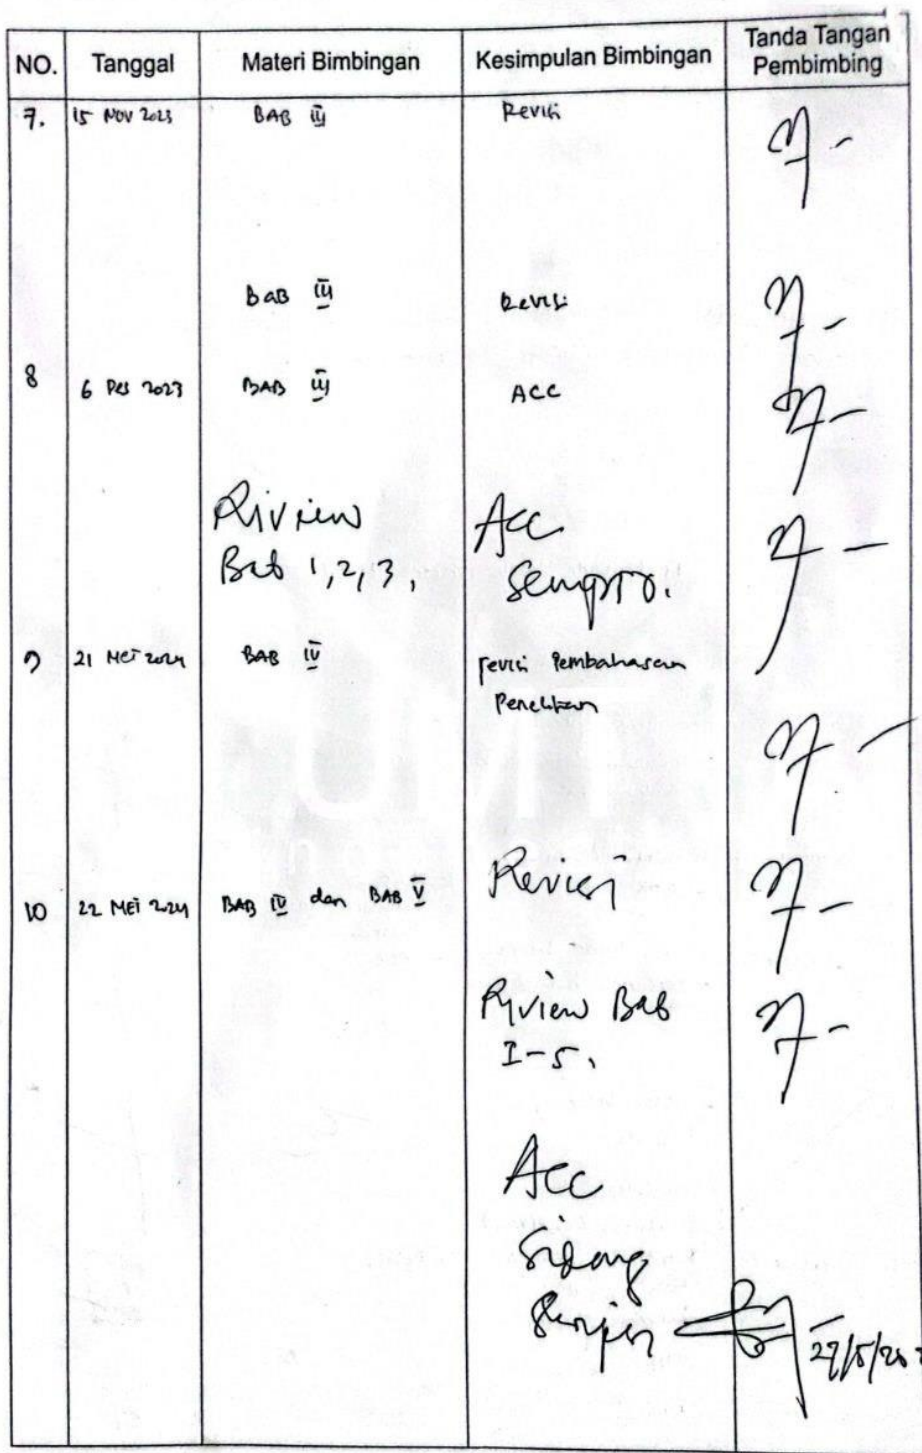 NO. Tanggal Materi Bimbingan Kesimpulan Bimbingan Tanda Tangan Pembimbing
7. 15 NOV 2023 BAB III Revisi
BAB III Revisi
8 6 Des 2023 BAB III ACC
Riview Acc
Bab 1,2,3, Sempro.
9 21 MEI 2024 BAB IV revisi Pembahasan
Penelitian
10 22 MEI 2024 BAB IV dan BAB V Revisi
Riview Bab
I-5.
Acc
Sidang
27/5/202